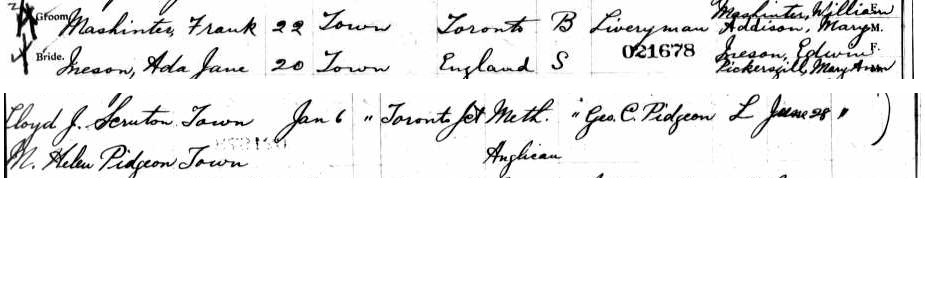 Groom. Mashinter, Frank 22 Town Toronto B Liveryman Mashinter, William F.
Addison, Mary M.
021678
Bride. Ineson, Ada Jane 20 Town England S Ineson, Edwin F.
Pickersgill, Mary Ann
Lloyd J. Scruton Town Jan 6 " Toronto Jct Meth. " Geo. C. Pidgeon L June 28 " )
M. Helen Pidgeon Town Anglican